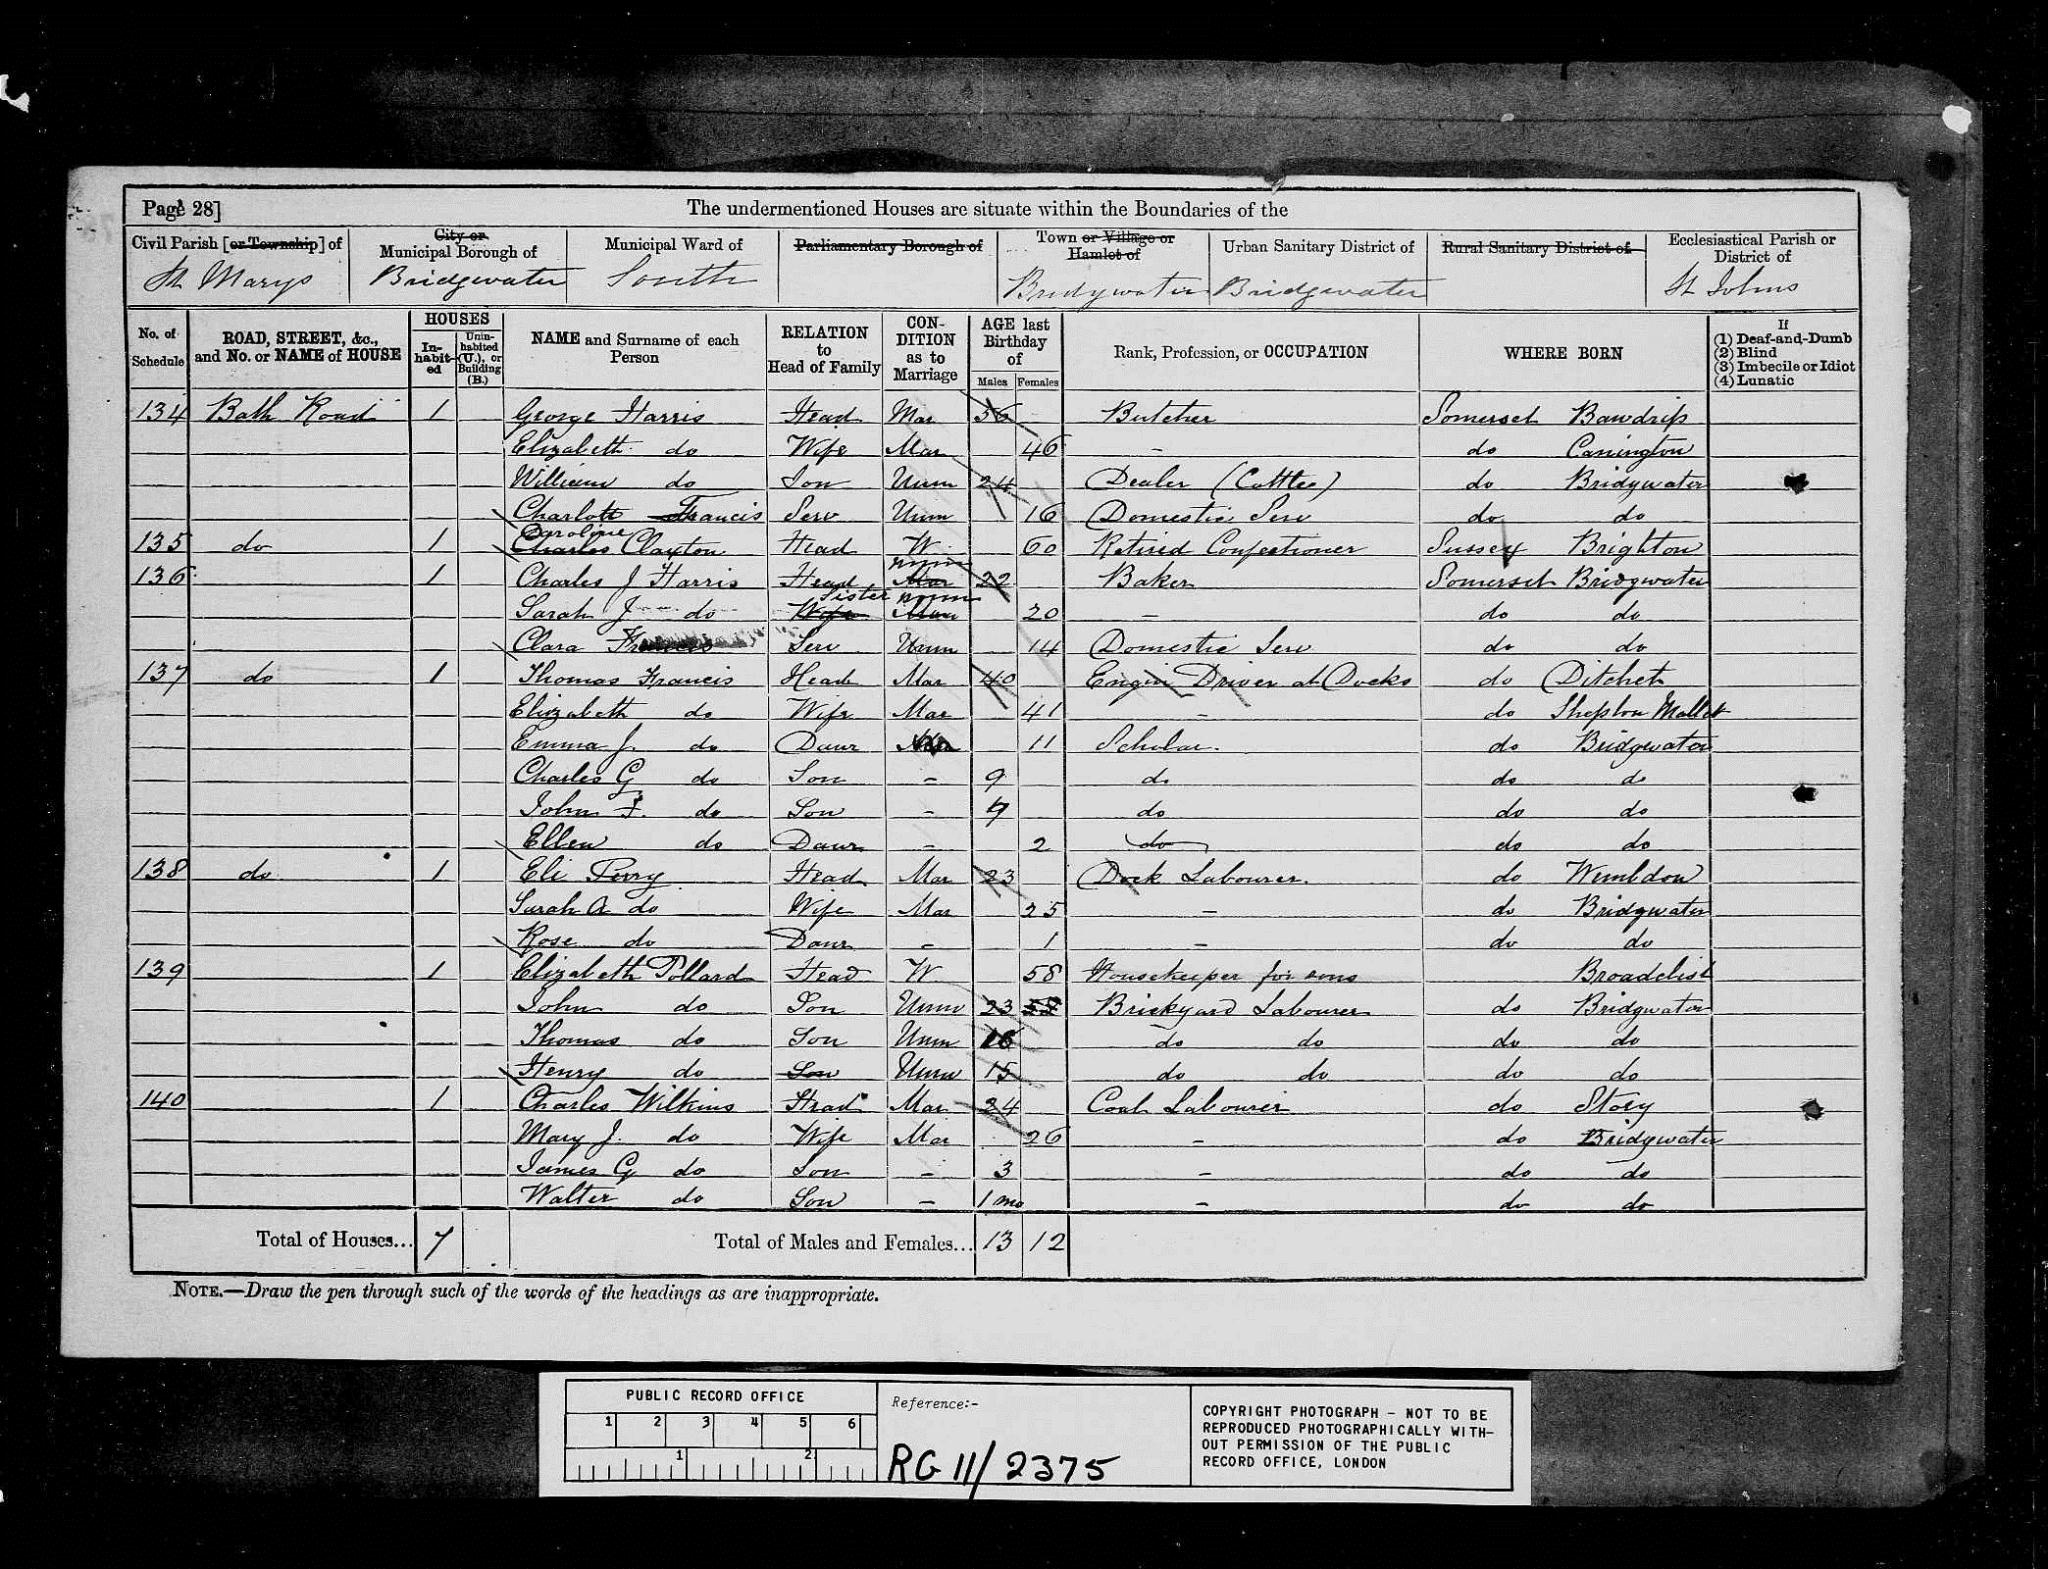 Page 28]
The undermentioned Houses are situate within the Boundaries of the
Civil Parish [or Township] of
St Marys
City or
Municipal Borough of
Bridgwater
Municipal Ward of
South
Parliamentary Borough of
Town or Village or
Hamlet of
Bridgwater
Urban Sanitary District of
Bridgewater
Rural Sanitary District of
Ecclesiastical Parish or
District of
St Johns
No. of
Schedule
ROAD, STREET, &c.,
and No. or NAME of HOUSE
HOUSES
In-
habit-
ed
Unin-
habited
(U.), or
Building
(B.)
NAME and Surname of each
Person
RELATION
to
Head of Family
CON-
DITION
as to
Marriage
AGE last
Birthday
of
Males Females
Rank, Profession, or OCCUPATION
WHERE BORN
If
(1) Deaf-and-Dumb
(2) Blind
(3) Imbecile or Idiot
(4) Lunatic
134 Bath Road 1 George Harris Head Mar 56 Butcher Somerset Bawdrip
Elizabeth do Wife Mar 46 - do Cannington
William do Son Unm 24 Dealer (Cattle) do Bridgwater
Charlott Francis Serv Unm 16 Domestic Serv do do
Caroline
135 do 1 Charles Clayton Head W 60 Retired Confectioner Sussex Brighton
unm
136 1 Charles J Harris Head Mar 22 Baker Somerset Bridgwater
Sister unm
Sarah J do Wife Mar 20 - do do
Clara Francis Serv Unm 14 Domestic Serv do do
137 do 1 Thomas Francis Head Mar 40 Engin Driver at Docks do Ditchet
Elizabeth do Wife Mar 41 - do Shepton Mallet
Emma J. do Daur 11 Scholar. do Bridgwater
Charles G do Son - 9 do do do
John F. do Son - 7 do do do
Ellen do Daur - 2 do do do
138 do 1 Eli Perry Head Mar 23 Dock Labourer. do Wembdon
Sarah A do Wife Mar 25 - do Bridgwater
Rose do Daur - 1 - do do
139 1 Elizabeth Pollard Head W 58 Housekeeper for sons Broadclist
John do Son Unm 23 58 Brickyard Labourer do Bridgwater
Thomas do Son Unm 16 do do do do
Henry do Son Unm 15 do do do do
140 1 Charles Wilkins Head Mar 24 Coal Labourer do Stoey
Mary J. do Wife Mar 26 - do Bridgwater
James G do Son - 3 - do do
Walter do Son - 1 mo - do do
Total of Houses... 7 Total of Males and Females... 13 12
NOTE.—Draw the pen through such of the words of the headings as are inappropriate.
PUBLIC RECORD OFFICE
1 2 3 4 5 6
1 2
Reference:-
RG 11/2375
COPYRIGHT PHOTOGRAPH - NOT TO BE
REPRODUCED PHOTOGRAPHICALLY WITH-
OUT PERMISSION OF THE PUBLIC
RECORD OFFICE, LONDON